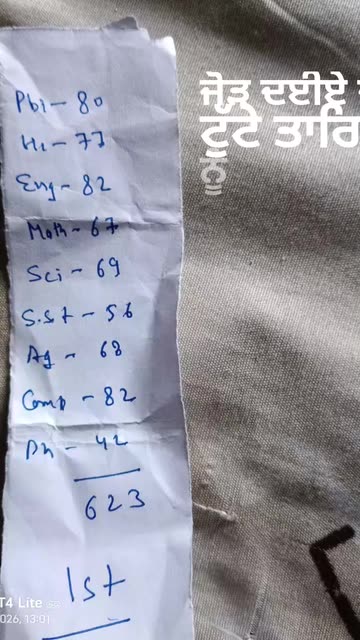 Pbi - 80
Hi - 77
Eng - 82
Math - 67
Sci - 69
S.St - 56
Ag - 68
Comp - 82
Ph - 42
623
1st
ਜੋੜ ਦਈਏ
ਟੁੱਟੇ ਤਾਰਿ
T4 Lite
026, 13:01